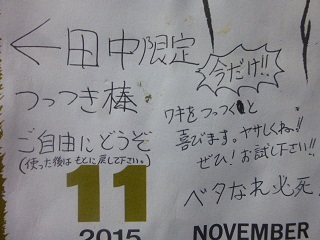 ←田中限定
つっつき棒
ご自由にどうぞ
(使った後はもとに戻して下さい。)
今だけ!!
ワキをつっつくと
喜びます。ヤサしくね。!!
ぜひ!お試し下さい!!
ベタなれ必死
11
2015
NOVEMBER